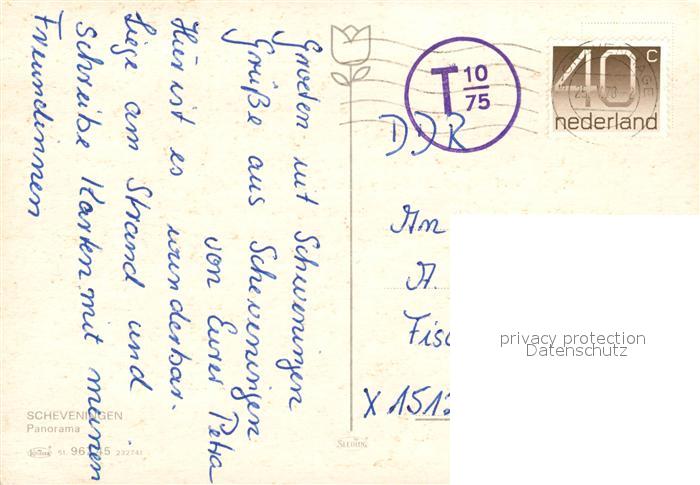 Groeten uit Scheveningen
Grüße aus Scheveningen
von Eurer Petra
Hier ist es wunderbar.
Liege am Strand und
schreibe Karten mit meinen
Freundinnen
T 10
75
40 c
nederland
DDR
An
A.
Fisc
X 1513
privacy protection
Datenschutz
SCHEVENINGEN
Panorama